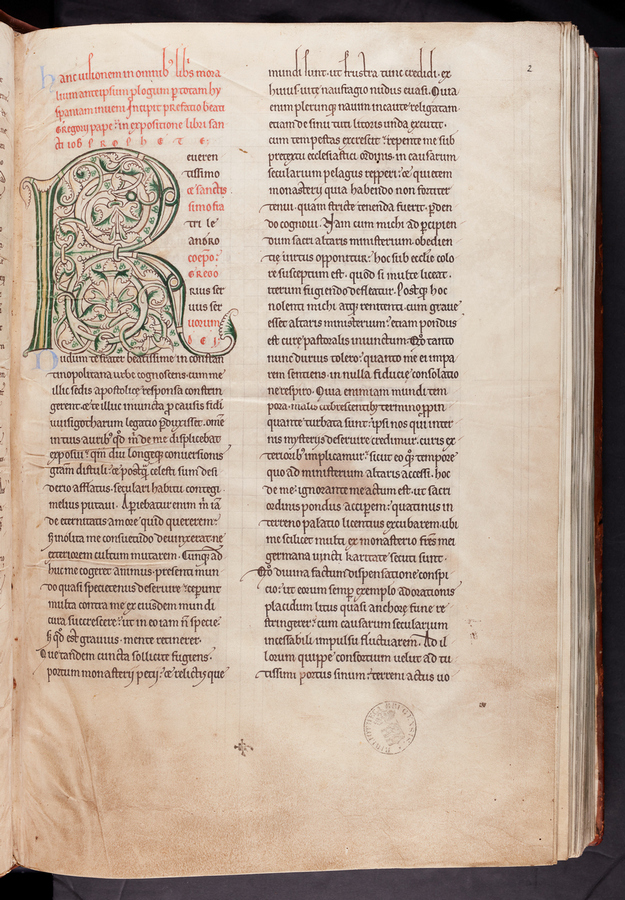 hanc visionem in omnib; lib's mora
lium ante ipsum p̱logum p̱ totam hy
spaniam inveni. Incipit prefatio beati
Gregorij pape: in expositione libri san
cti iob PROPHETE:
Reueren
tissimo
& sanctis
simo fra
tri le
andro
coepo:
GREGO
rius ser
uus ser
uorum
DEI.
Dudum te frater beatissime in constan
tinopolitana urbe cognoscens cum me
illic sedis apostolicę responsa constrin
gerent. & te illuc iniuncta p̱ causis fidei
uuisigotharum legatio p̱duxisset. om̄e
in tuis aurib; qd̄ m̄ de me displicebat
exposui. qm̄ diu longeq; conuersionis
gr̄am distuli: & postq̄ celesti sum desi
derio afflatus. seculari habitu contegi
melius putaui. Apiebatur enim m̄ iā
de eternitatis amore quid quererem:
s; inolita me consuetudo deuinxerat. ne
exteriorem cultum mutarem. Cunq; ad
huc me cogeret animus. presenti mun
do quasi specietenus deseruire. ceperunt
multa contra me ex eiusdem mundi
cura succrescere: ut in eo iam n̄ specie.
s; qd̄ est grauius. mente retinerer.
Que tandem cuncta sollicite fugiens.
portum monasterij petij: & relictis que
2
mundi sunt. ut frustra tunc credidi. ex
huius uite naufragio nudus euasi. Quia
enim plerunq; nauim incaute religatam
etiam de sinu tuti litoris unda excutit.
cum tempestas excrescit: repente me sub
pretextu ecclesiastici ordinis. in causarum
secularium pelagus repperi: & quietem
monasterij quia habendo non fortiter
tenui. quam stricte tenenda fuerit. p̱den
do cognoui. Nam cum michi ad percipien
dum sacri altaris ministerium. obedien
tię uirtus opponitur: hoc sub ecclie colo
re susceptum est. quod si inulte liceat.
iterum fugiendo defleatur. Postq; hoc
nolenti michi atq; renitenti. cum graue
esset altaris ministerium: etiam pondus
est curę pastoralis iniunctum. Qd̄ tanto
nunc durius tolero: quanto me ei impa
rem sentiens. in nulla fiducię consolatio
ne respiro. Quia enim iam mundi tem
pora. malis crebrescentib; termino p̱pin
quante turbata sunt: ipsi nos qui inter
nis mysterijs deseruire credimur. curis ex
teriorib; implicamur: sicut eo q; tempore
quo ad ministerium altaris accessi. hoc
de me ignorante me actum est. ut sacri
ordinis pondus acciperem: quatinus in
terreno palatio licentius excubarem. ubi
me scilicet multi ex monasterio fr̄es mei
germana uincti karitate secuti sunt.
Qd̄ diuina factum dispensatione conspi
cio: ut eorum semper exemplo ad orationis
placidum litus quasi anchorę fune re
stringerer: cum causarum secularium
incessabili impulsu fluctuarem. Ad il
lorum quippe consortium uelut ad tu
tissimi portus sinum: terreni actus uo